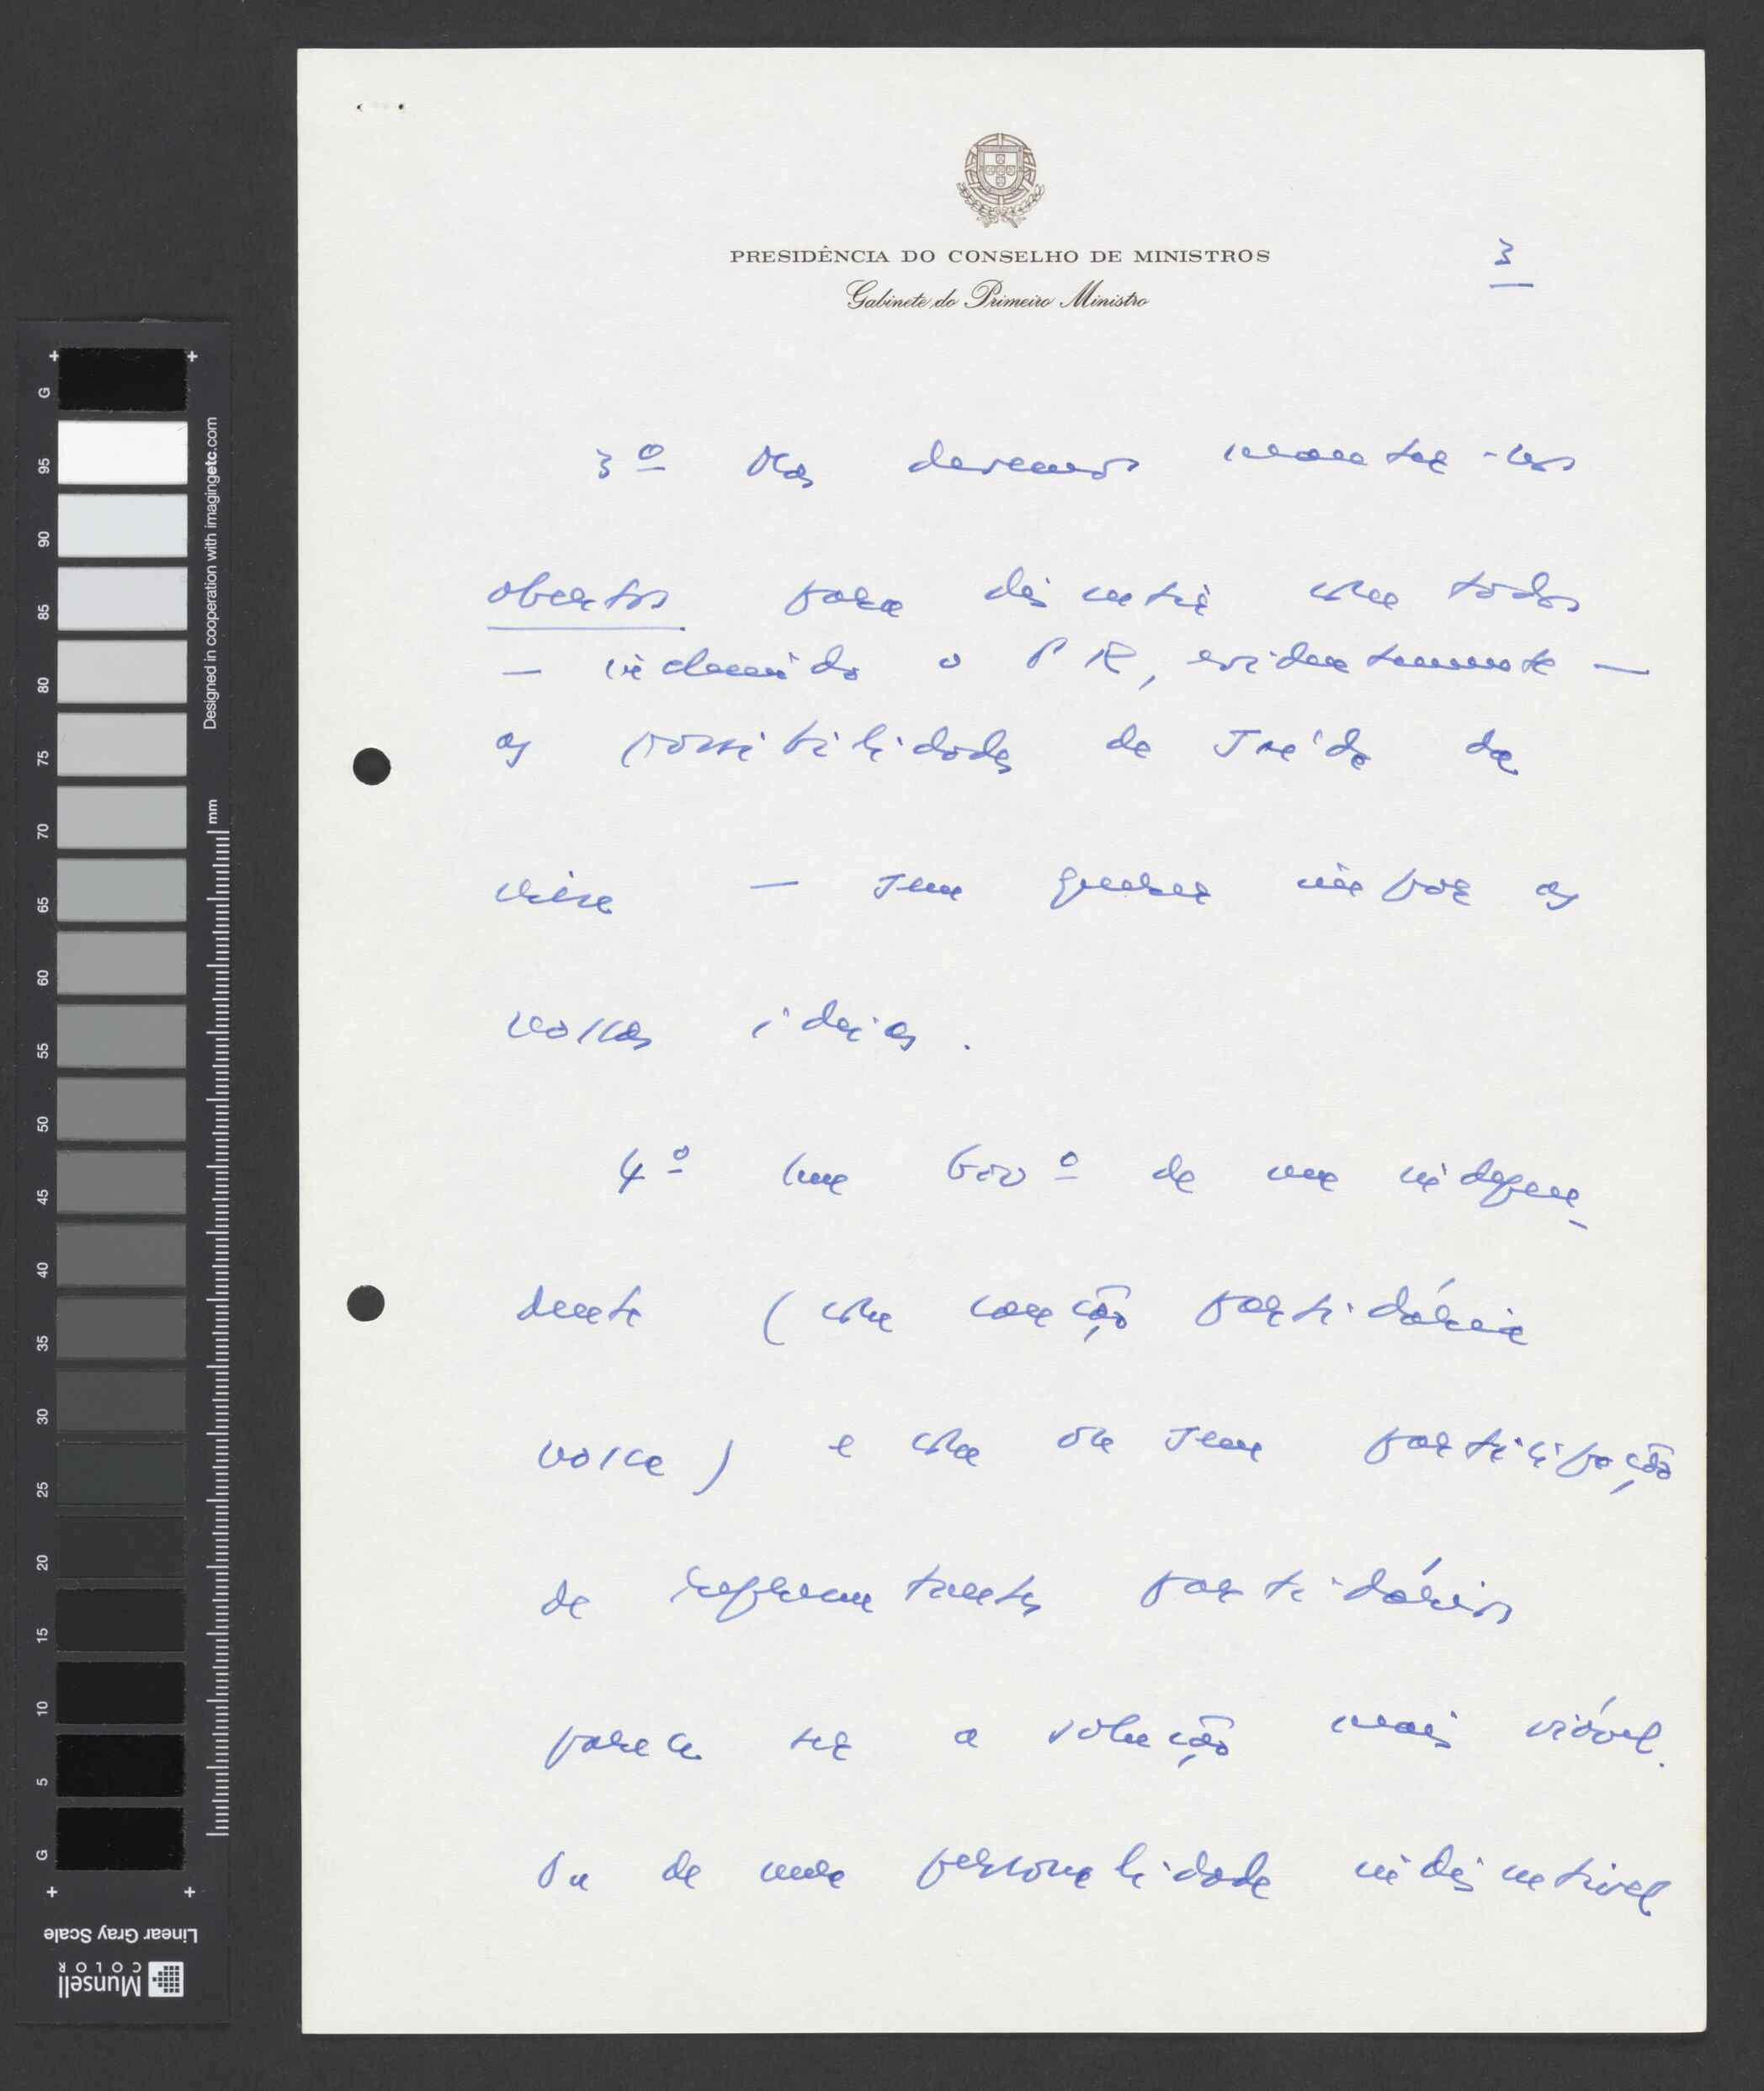 PRESIDÊNCIA DO CONSELHO DE MINISTROS
Gabinete do Primeiro Ministro
3
3º Mas devemos manter-nos
abertos para discutir com todos
— incluindo o PR, evidentemente —
as possibilidades de saída da
crise — sem querer impor as
nossas ideias.
4º Um Govº de um indepen-
dente (com caução partidária
nossa) e com ou sem participação
de representantes partidários
parece ser a solução mais viável.
Ou de uma personalidade indiscutível
G
95
90
85
80
75
70
65
60
55
50
45
40
35
30
25
20
15
10
5
G
Designed in cooperation with imagingetc.com
mm
Linear Gray Scale
Munsell
COLOR